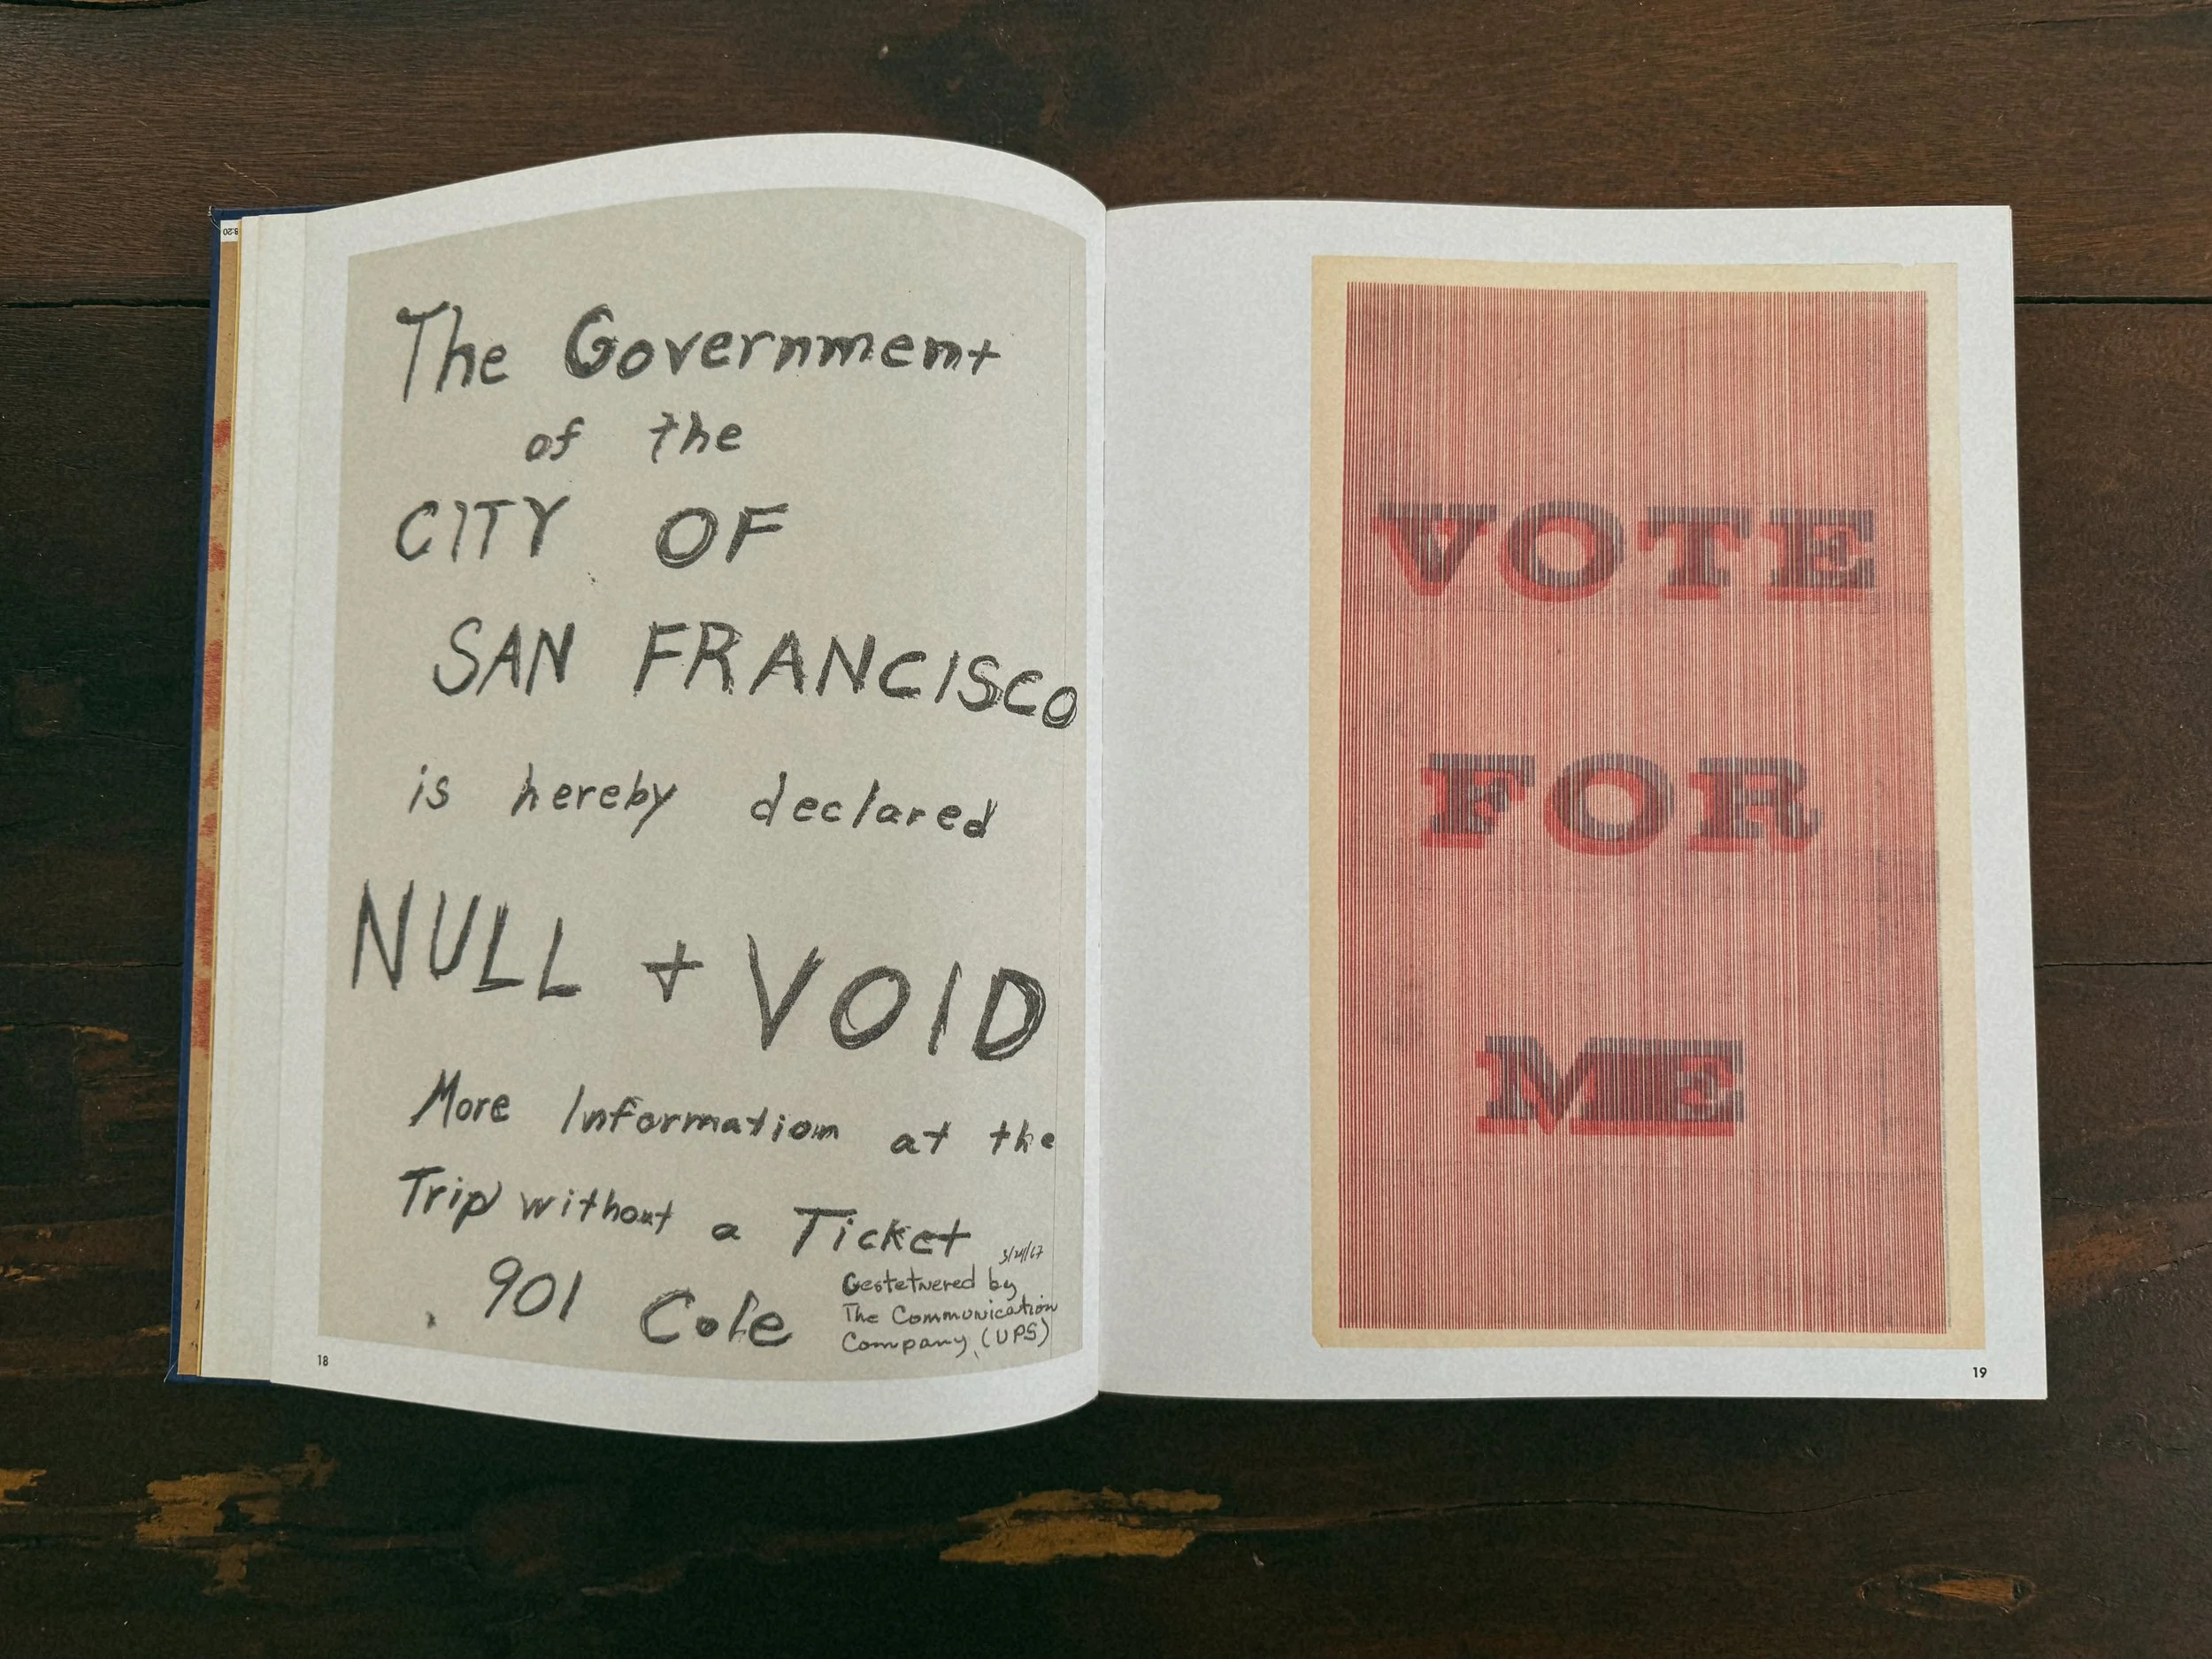 The Government
of the
CITY OF
SAN FRANCISCO
is hereby declared
NULL + VOID
More Information at the
Trip without a Ticket
901 Cole
Gestetnered by
The Communication
Company, (UPS)
18
VOTE
FOR
ME
19